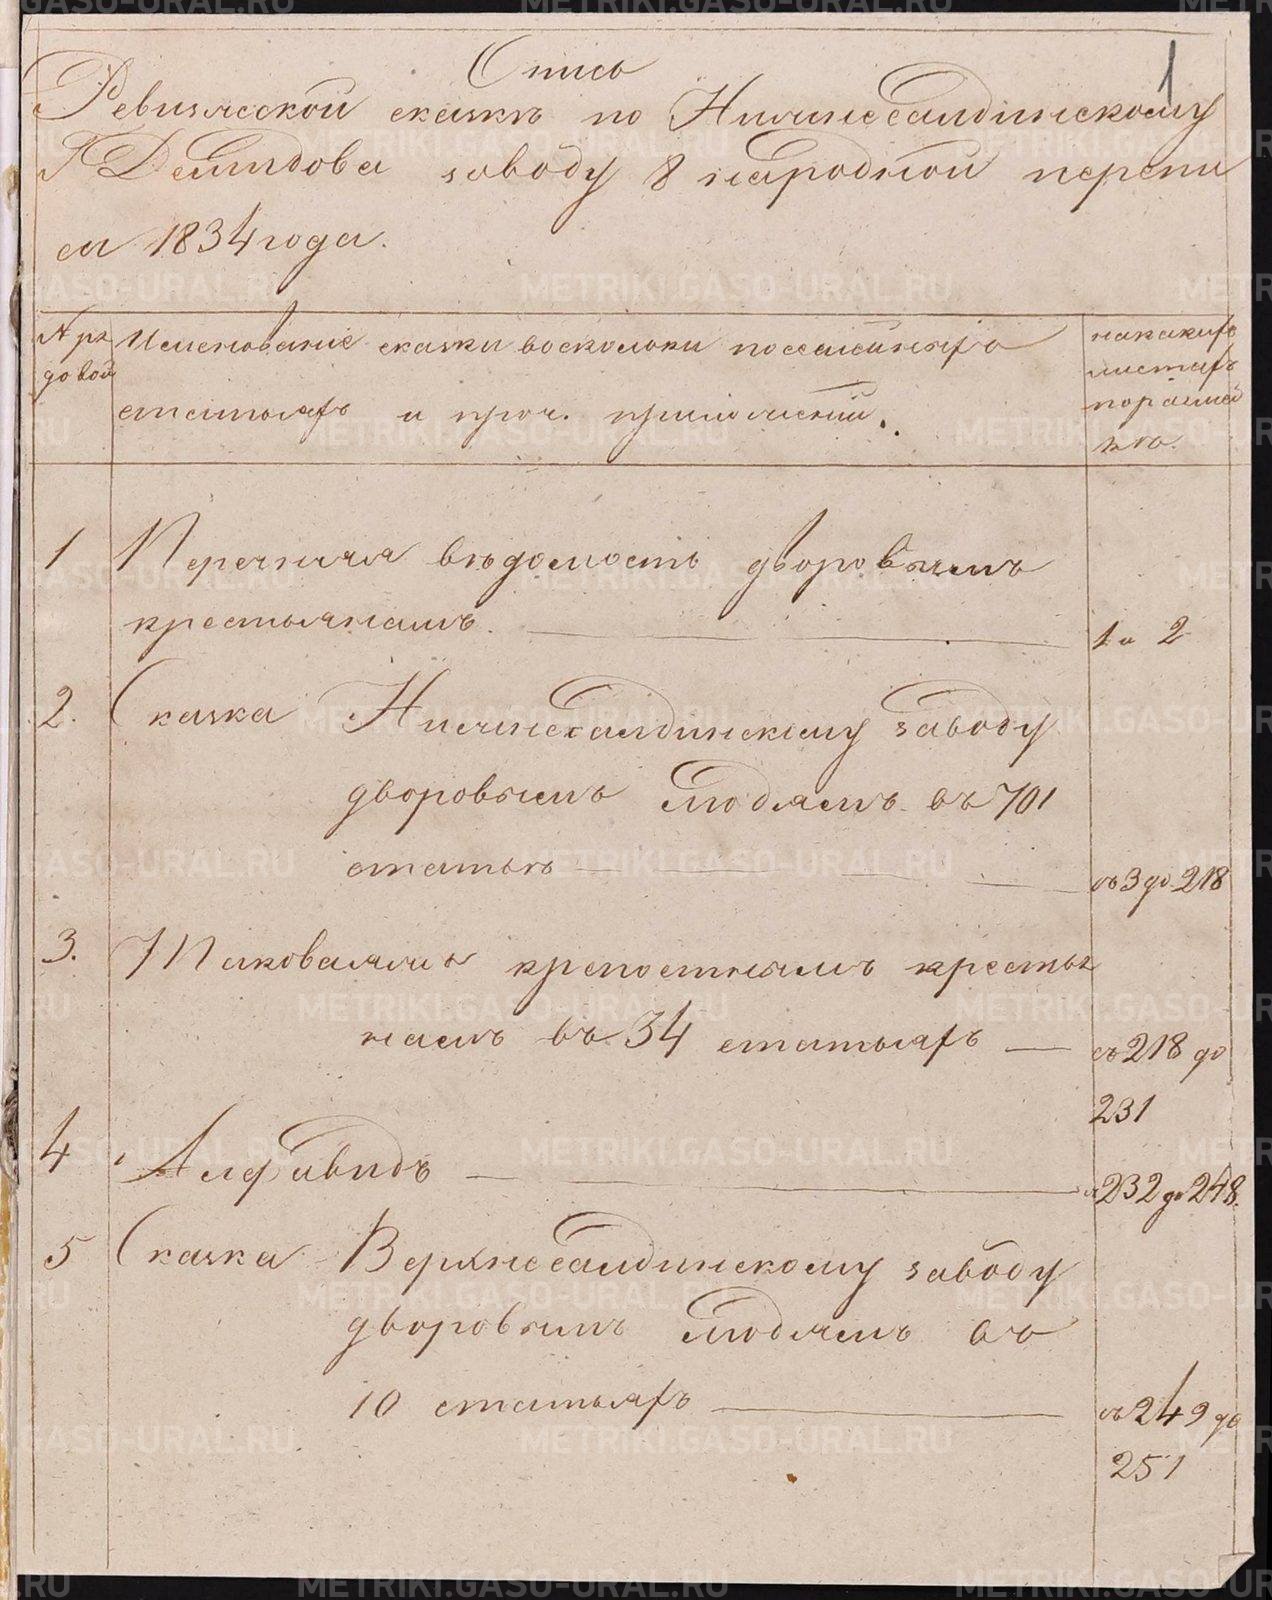 Опись
1
Ревизской сказкѣ по Нижнесалдинскому
Г Демидова заводу 8 народной перепи
си 1834 года.
№ ря
довой
Именованіе сказки восколоки
статьяхъ и проч. приложеній.
на какихъ
листахъ
1 Перечная вѣдомость дворовымъ
крестьянамъ. 1 и 2
2. Сказка Нижнесалдинскому заводу
дворовымъ людямъ въ 701
статьѣ съ 3 до 218
3. Таковаяжъ крепостнымъ крестья
намъ въ 34 статьяхъ съ 218 до
231
4 Алфавидъ 232 до 248.
5 Сказка Верхнесалдинскому заводу
дворовымъ людямъ въ
10 статьяхъ съ 249 до
251
METRIKI.GASO-URAL.RU